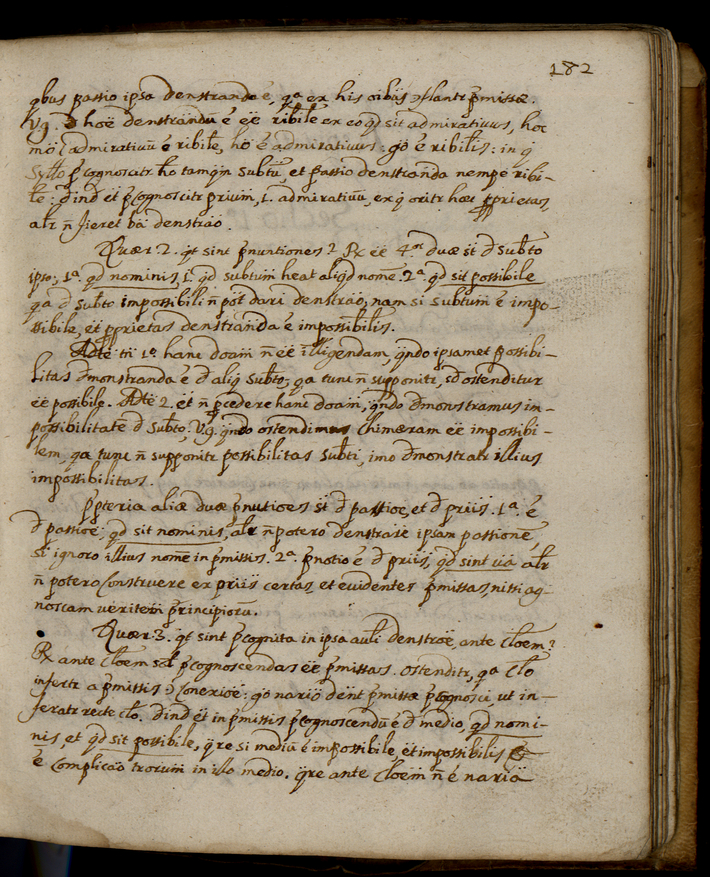 182
qbus passio ipsa denstranda é, qa ex his oibus cflantr pmissæ.
Vg. đ hoē denstrandū é éé ribile ex eo qđ sit admirativus, hoc
mō: admirativū é ribile, hō é admirativus: gō é ribilis: in q
Syllō pcognoscitr hō tamqm subtū, et passio denstranda nempe ribi-
le: đind et pcognoscitr prium, 1. admirativū, ex q oritr hæc pprietas,
alr ñ fieret bā denstraō.
Quær 2. qt sint pnuntiones? Rx éé 4or duæ st đ subto
ipso; 1a. qđ nominis, 1. qđ subtum heat aliqđ nomē. 2a. qđ sit possibile
qa đ subto impossibili ñ pōt dari denstraō, nam si subtum é impo-
ssibile, ēt pprietas denstranda é impossibilis.
Adte tn 1o hanc doam ñ éé illigendam, qndo ipsamet possibi-
litas đmonstranda é đ aliq subto; qa tunc ñ supponitr, sđ ostenditur
éé possibile. Adte 2. ēt ñ pcedere hanc doam, qndo đmonstramus in-
possibilitatē đ subto, Vg. qndo ostendimus Chimæram éé impossibi-
lem qa tunc ñ supponitr possibilitas subti, imo đmonstratr illius
impossibilitas.
Ppteria aliæ duæ pnutioes st đ passioe, et đ priis. 1a. é
đ passioē; qđ sit nominis, alr ñ potero denstrare ipsam passionē,
si ignoro illius nomē in pmissis. 2a. pnotio é đ priis, qđ sint via alr
ñ potero construere ex priis certas, et evidentes pmissas, nissi ag-
noscam veritem principiorū.
Quær 3. qt sint pcognita in ipsa auli denstroē, ante cloem?
Rx ante cloem sol pcognoscendas éé pmissas. ostenditr, qa clo
infertr a pmissis đ conexioē: gō nariō dent pmissæ pcognosci, ut in-
feratr recte clo. Đind ēt in pmissis pcognoscendū é đ medio, qđ nomi-
nis, et qđ sit possibile, qre si mediū é impossibile, ēt impossibilis
é complicaō trorum in illo medio. qre ante cloem ñ é naria